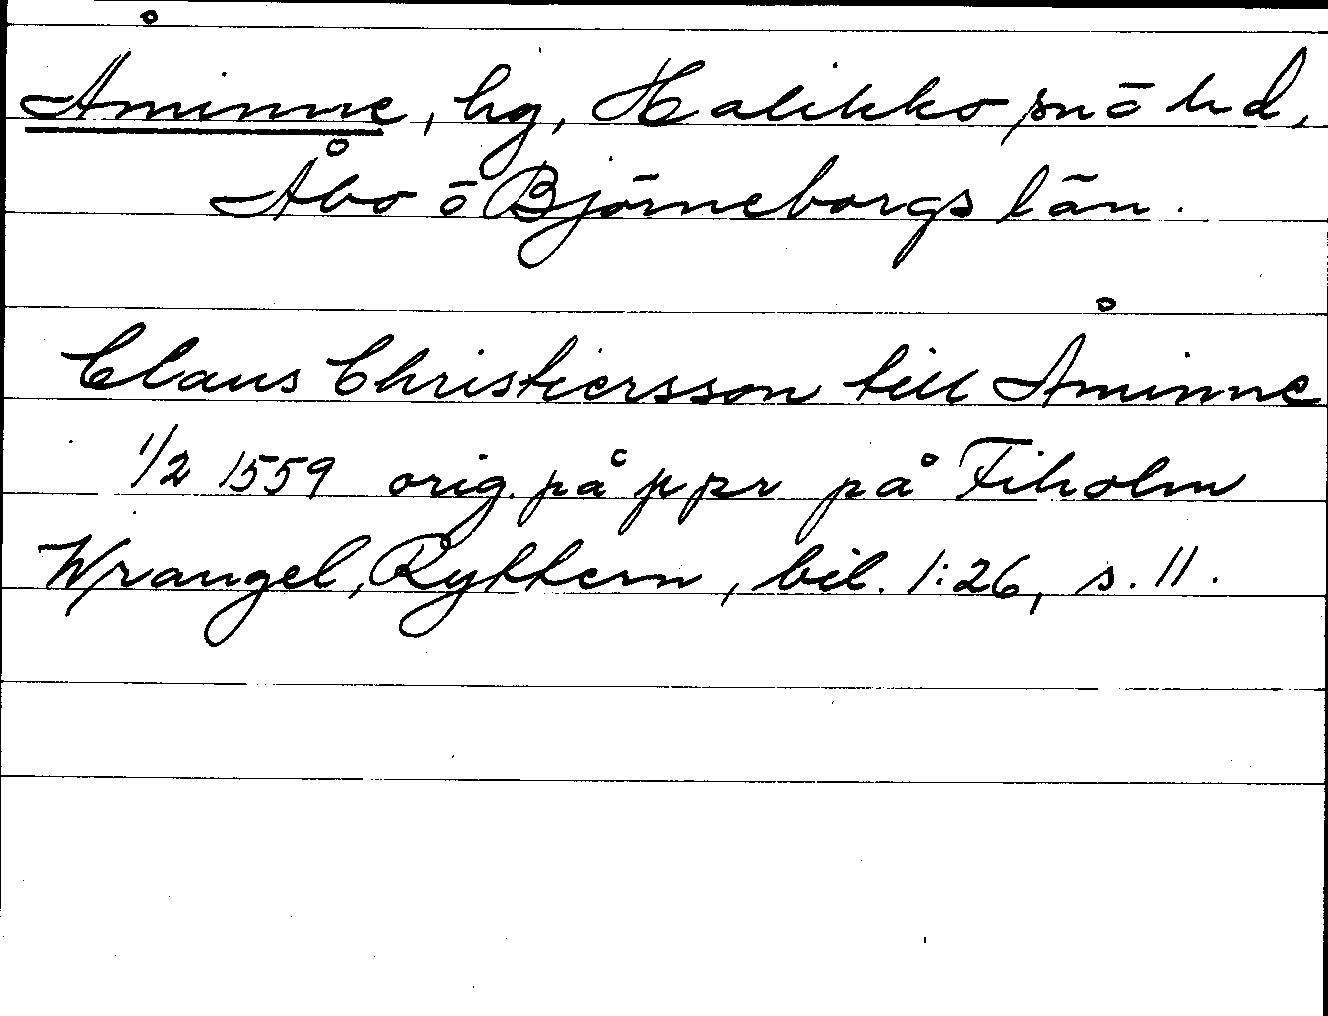 Åminne, hg, Halikko sn ō hd,
Åbo ō Björneborgs län.
Claus Christiersson till Åminne
1/2 1559 orig. på ppr på Fiholm
Wrangel, Rytterne, bil. 1:26, s. 11.